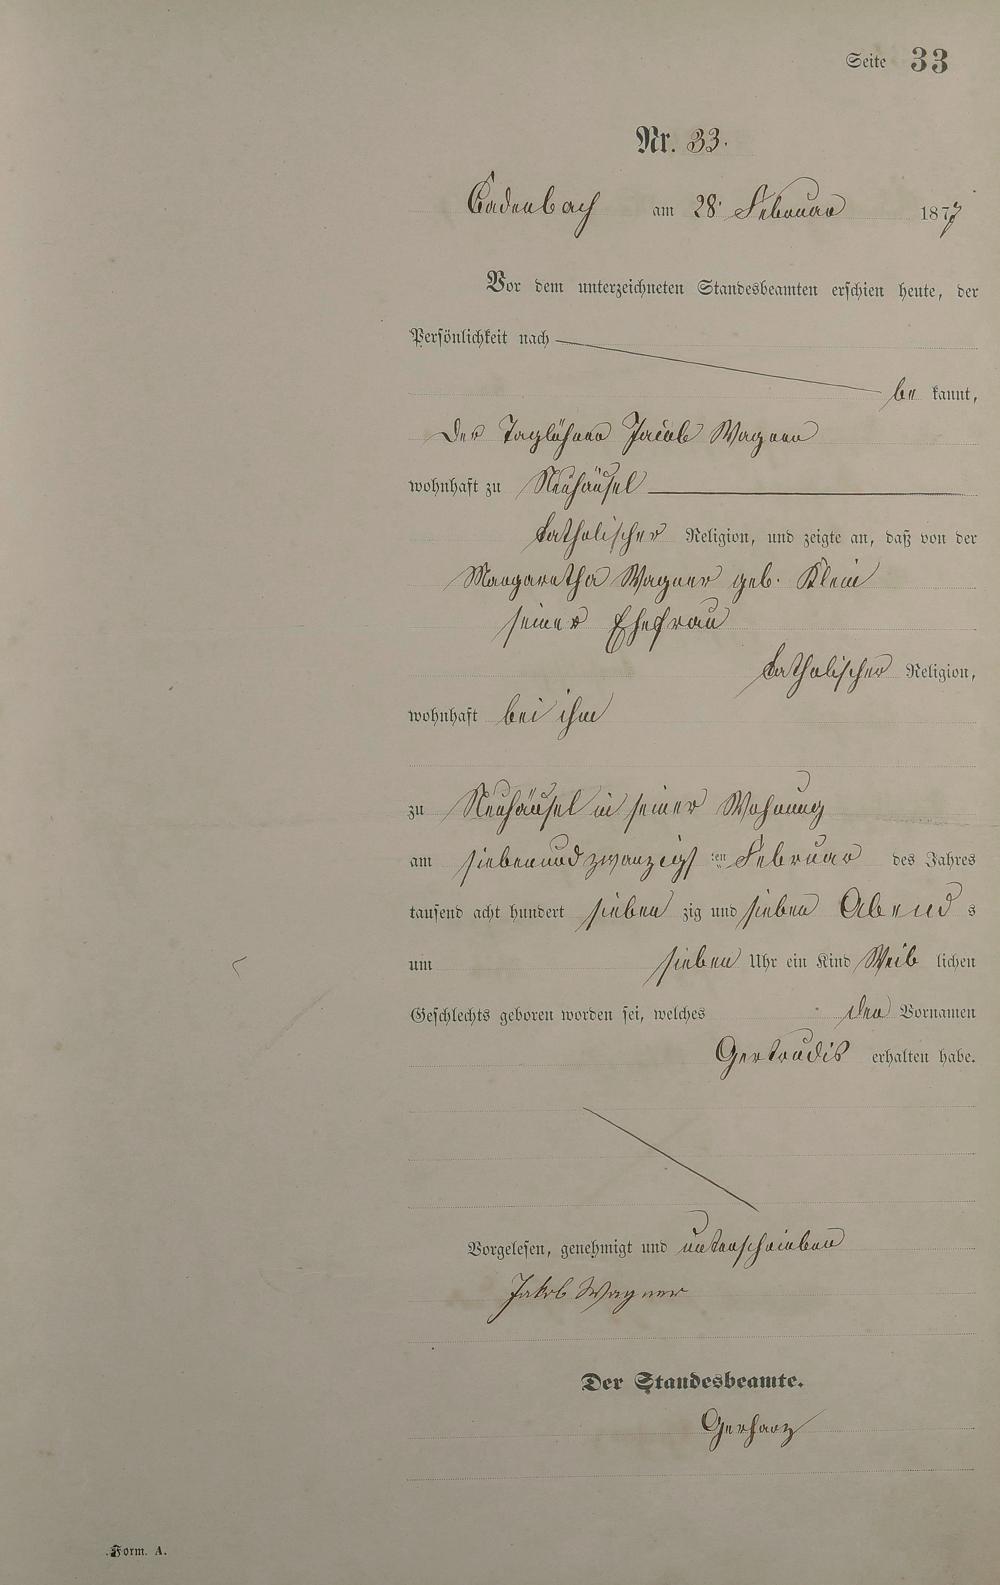 Seite 33
Nr. 33.
Cadenbach am 28. Februar 1877
Vor dem unterzeichneten Standesbeamten erschien heute, der
Persönlichkeit nach
be kannt,
der Taglöhner Jacob Wagner
wohnhaft zu Neuhäusel
katholischer Religion, und zeigte an, daß von der
Margaretha Wagner geb. Klein
seiner Ehefrau
katholischer Religion,
wohnhaft bei ihm
zu Neuhäusel in seiner Wohnung
am siebenundzwanzigsten Februar des Jahres
tausend acht hundert sieben zig und sieben Abend s
um sieben Uhr ein Kind Weib lichen
Geschlechts geboren worden sei, welches den Vornamen
Gertrudis erhalten habe.
Vorgelesen, genehmigt und unterschrieben
Jakob Wagner
Der Standesbeamte.
Gerharz
Form. A.